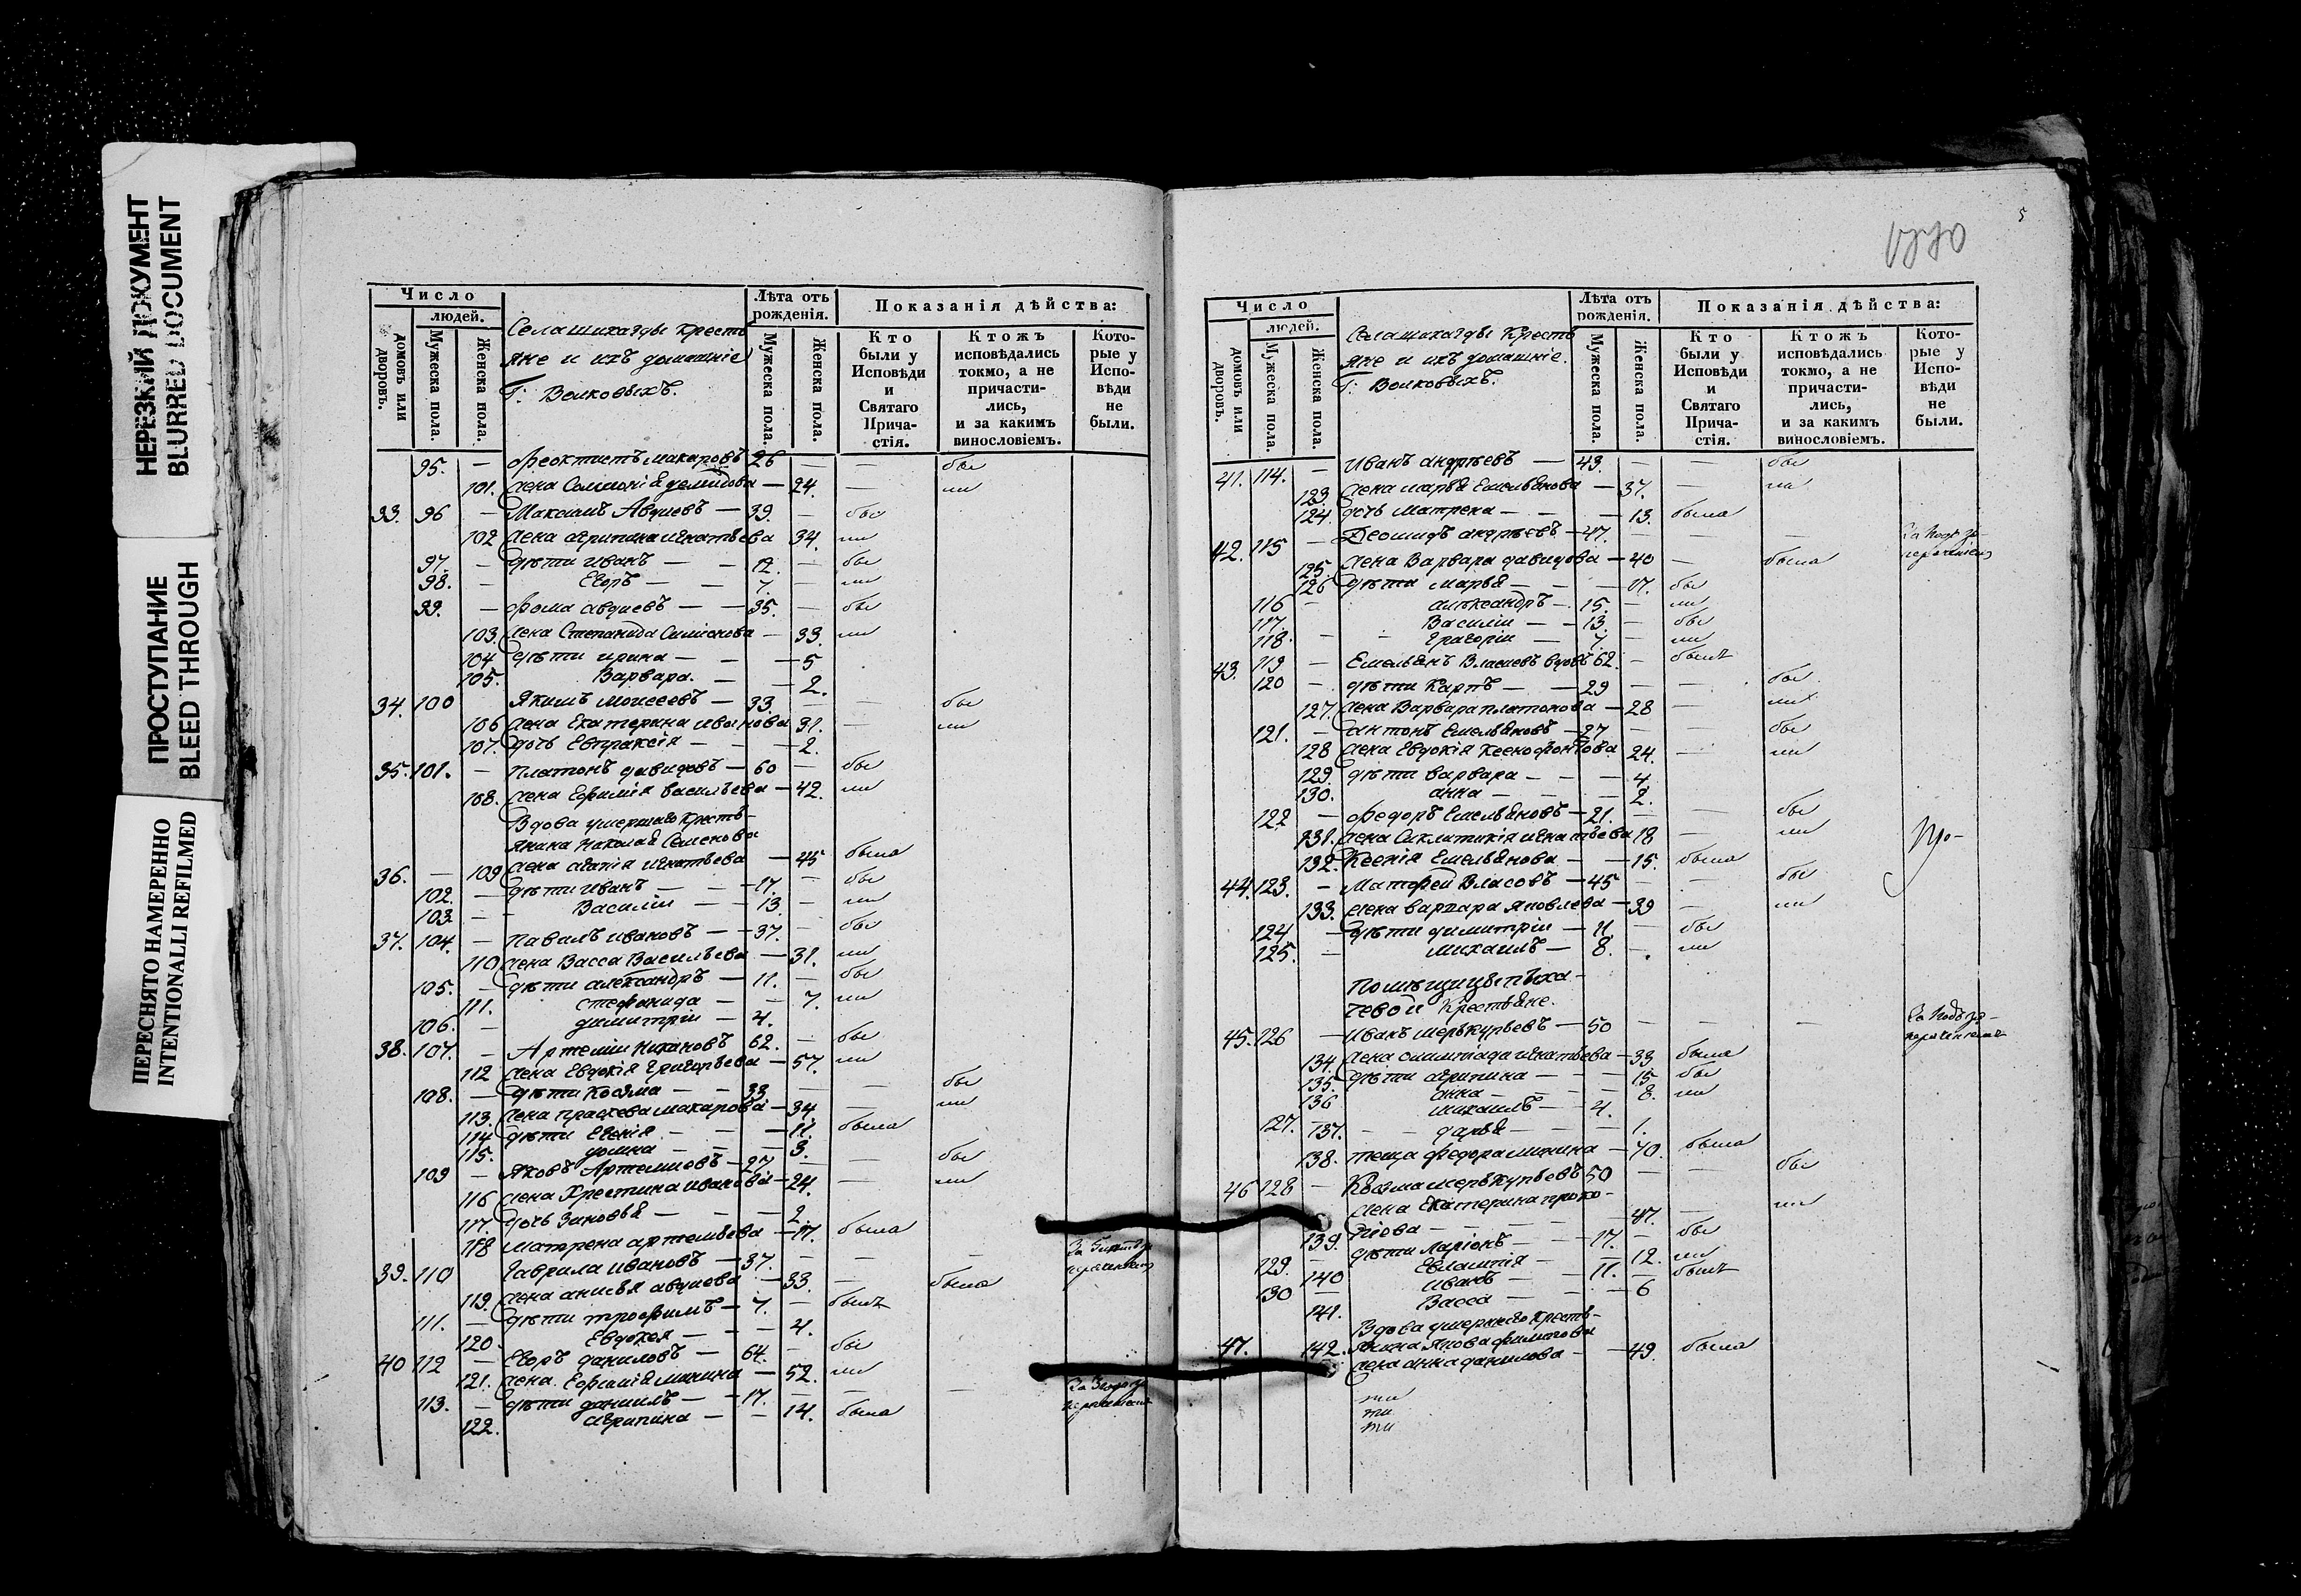 НЕРЕЗКИЙ ДОКУМЕНТ
BLURRED DOCUMENT
ПРОСТУПАНИЕ
BLEED THROUGH
ПЕРЕСНЯТО НАМЕРЕННО
INTENTIONALLI REFILMED
Число
людей.
домовъ или дворовъ.
Мужеска пола.
Женска пола.
Села шихазды кресть
яне и ихъ домашніе
Г: Волковыхъ.
Лѣта отъ рожденія.
Мужеска пола.
Женска пола.
Показанія дѣйства:
Кто были у Исповѣди и Святаго Прича-стія.
Ктожъ исповѣдались токмо, а не причасти-лись, и за какимъ винословіемъ.
Кото-рые у Испо-вѣди не были.
95. — Феоктистъ макаровъ 26 — — бы
101. жена Соломонія демидова — 24. — ли
33. 96 — Максимъ Авдиевъ — 39. — бы
102 жена агрипина игнатьева 34. ли
97. — дѣти иванъ — — 12. — бы
98. — Егоръ — — 7. — ли
99. — фома авдиевъ — — 35. — бы
103. жена Степанида Симионова — 33. ли
104 дѣти ирина — — — 5
105. Варвара. — — 2.
34. 100 Якимъ моисеевъ — 33. — — бы
106 жена Екатерина иванова 31. — ли
107. дочь Евпраксія — — — 2.
35. 101. — Платонъ давидовъ — 60 — бы
108. жена Ефимія васильева — 42. ли
Вдова умершаго кресть-
янина Николая Семенова
36. — 109 жена агапія игнатьева — 45 была
102. — дѣти иванъ — — 17. — бы
103. — — Василіи — — 13. — ли
37. 104. — павилъ ивановъ — — 37. — бы
110 жена Васса Васильева — 31. ли
105. — дѣти александръ — 11. — бы
111. стефанида — — 7. ли
106. — димитріи — 4.
38. 107. — Артеміи Никановъ 62. — бы
112 жена Евдокія Григорьева — 57. ли
108. — дѣти Козма — — 33 — — бы
113. жена праскева макарова — 34. — ли
114 дѣти Евгенія — — — 11. была
115. домна — — — 3.
109 — Яковъ Артемиовъ — 27 — — бы
116 жена Христина иванова — 24. — ли
117. дочь Зиновья — — — 2
118 матрена артемьева — 17. была
39. 110 Гаврила ивановъ — 37. — — —
119. жена анисья авдиева — 33. — была
111. — дѣти трофимъ — 7. — былъ
120. Евдокея — — — 4.
40 112 — Егоръ даниловъ — 64. — бы
121. жена. Ефимія минина — 52. ли
113. — дѣти даниилъ — — 17. — — —
122. агрипина — — 14. была
5
Число
людей.
домовъ или дворовъ.
Мужеска пола.
Женска пола.
Села шихазды Кресть
яне и ихъ домашніе.
Г: Волковыхъ.
Лѣта отъ рожденія.
Мужеска пола.
Женска пола.
Показанія дѣйства:
Кто были у Исповѣди и Святаго Прича-стія.
Ктожъ исповѣдались токмо, а не причасти-лись, и за какимъ винословіемъ.
Кото-рые у Испо-вѣди не были.
41. 114. — Иванъ андреевъ — 43. — — бы
123. жена марья Емельянова — 37. — ли
124. дочь матрена — — — 13. была
42. 115 — Леонидъ андреевъ — 47. — — —
125. жена Варвара давидова — 40 — была
126 дѣти марья — — — 17. бы
116 — александръ — 15. — ли
117. Василіи — — 13. — бы
118. — — Григоріи — 7 — ли
43. 119 — Емельянъ Власиевъ вдовъ 62. — былъ
120 — дѣти Карпъ — — 29 — — бы
127. жена Варвара платонова — 28 — ли
121. — антонъ Емельяновъ — 27 — — бы
128 жена Евдокія Ксенофонтова. 24. — ли
129. дѣти варвара — — — 4.
130. анна — — — 2.
122 — федоръ Емельяновъ — 21. — — бы
131. жена Сиклитикія игнатьева 18 — ли
132. Ксенія Емельянова — — 15. была
44. 123. — Матфеи Власовъ — 45 — — бы
133. жена варвара яковлева — 39 — ли
124 — дѣти димитріи — 11. — бы
125. — михаилъ — 8. — ли
Помѣщицы пыха-
чевой Крестьяне.
45. 126 — Иванъ меркурьевъ — 50 — — —
134. жена олимпиада игнатьева — 33 была
135. дѣти агрипина — — — 15. бы
136 анна — — — 8. ли
127. — михаилъ — — 4.
137. — — дарья — — — 1.
138. теща федора минина — 70. была
46 128 — Козма меркурьевъ 50 — — бы
жена Екатерина проко-
139. піова — — — — 47. — ли
129. — дѣти Ларіонъ — — 17. — бы
140 Евлампія — — 12. ли
130 — иванъ — — 11. — былъ
141. Васса — — — 6
Вдова умершаго Кресть-
янина Якова филатова
47. 142. жена анна данилова — — 49. была